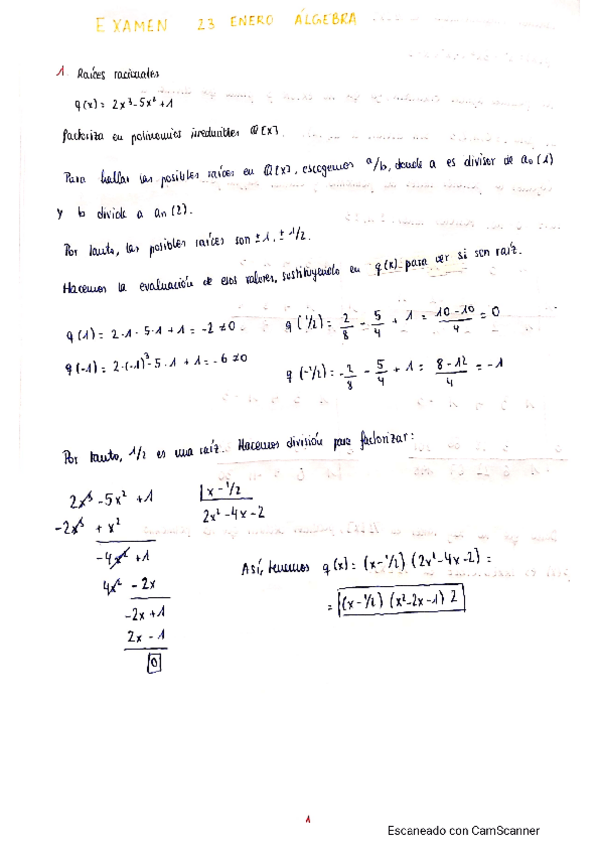 EXAMEN 23 ENERO ÁLGEBRA
1. Raíces racionales
q(x) = 2x³-5x²+1
Factoriza en polinomios irreducibles Q[x].
Para hallar las posibles raíces en Q[x], escogemos a/b, donde a es divisor de a₀ (1)
y b divide a an (2).
Por tanto, las posibles raíces son ±1, ±1/2.
Hacemos la evaluación de esos valores, sustituyendo en q(x) para ver si son raíz.
q(1) = 2·1 - 5·1 + 1 = -2 ≠ 0.
q(1/2) = 2/8 - 5/4 + 1 = 10-10/4 = 0
q(-1) = 2·(-1)³-5·1 + 1 = -6 ≠ 0
q(-1/2) = -2/8 - 5/4 + 1 = 8-12/4 = -1
Por tanto, 1/2 es una raíz. Hacemos división para factorizar:
2x³ -5x² +1 |x-1/2
-2x³ + x² 2x²-4x-2
-4x² +1
4x² - 2x
-2x +1
2x - 1
0
Así, tenemos q(x) = (x-1/2) (2x²-4x-2) =
= (x-1/2) (x²-2x-1) 2
1
Escaneado con CamScanner